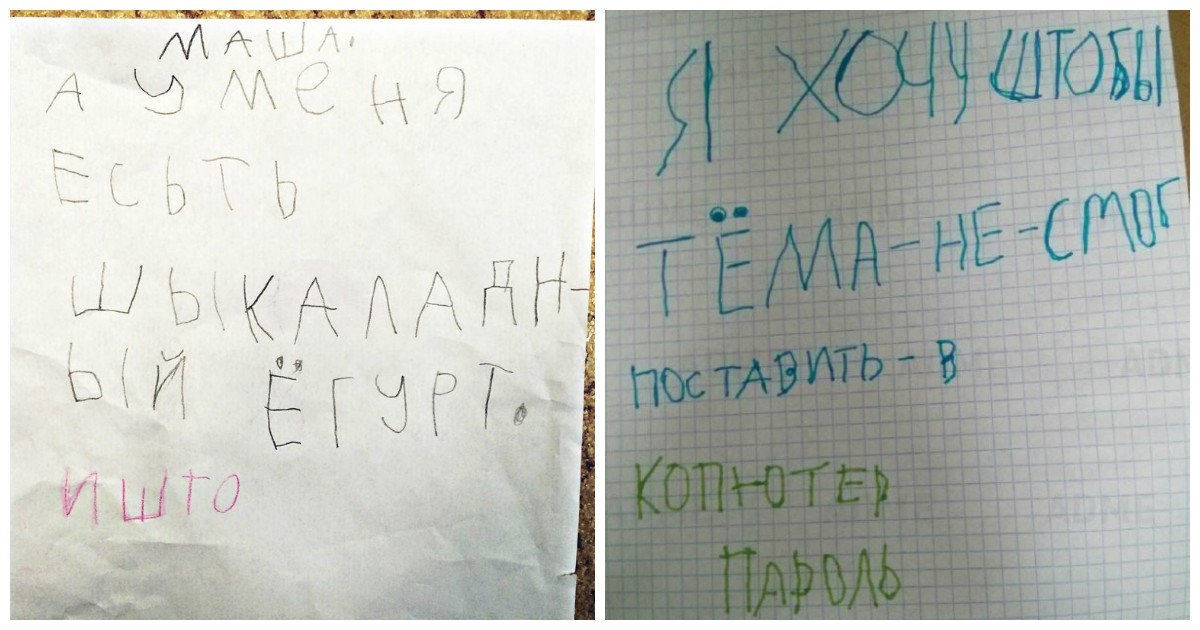 МАША.
А У МЕНЯ
ЕСЬТЬ
ШЫКАЛАДН-
ЫЙ ЁГУРТ.
И ШТО
Я ХОЧУ ШТОБЫ
ТЁМА-НЕ-СМОГ
ПОСТАВИТЬ-В
КОПЮТЕР
ПАРОЛЬ